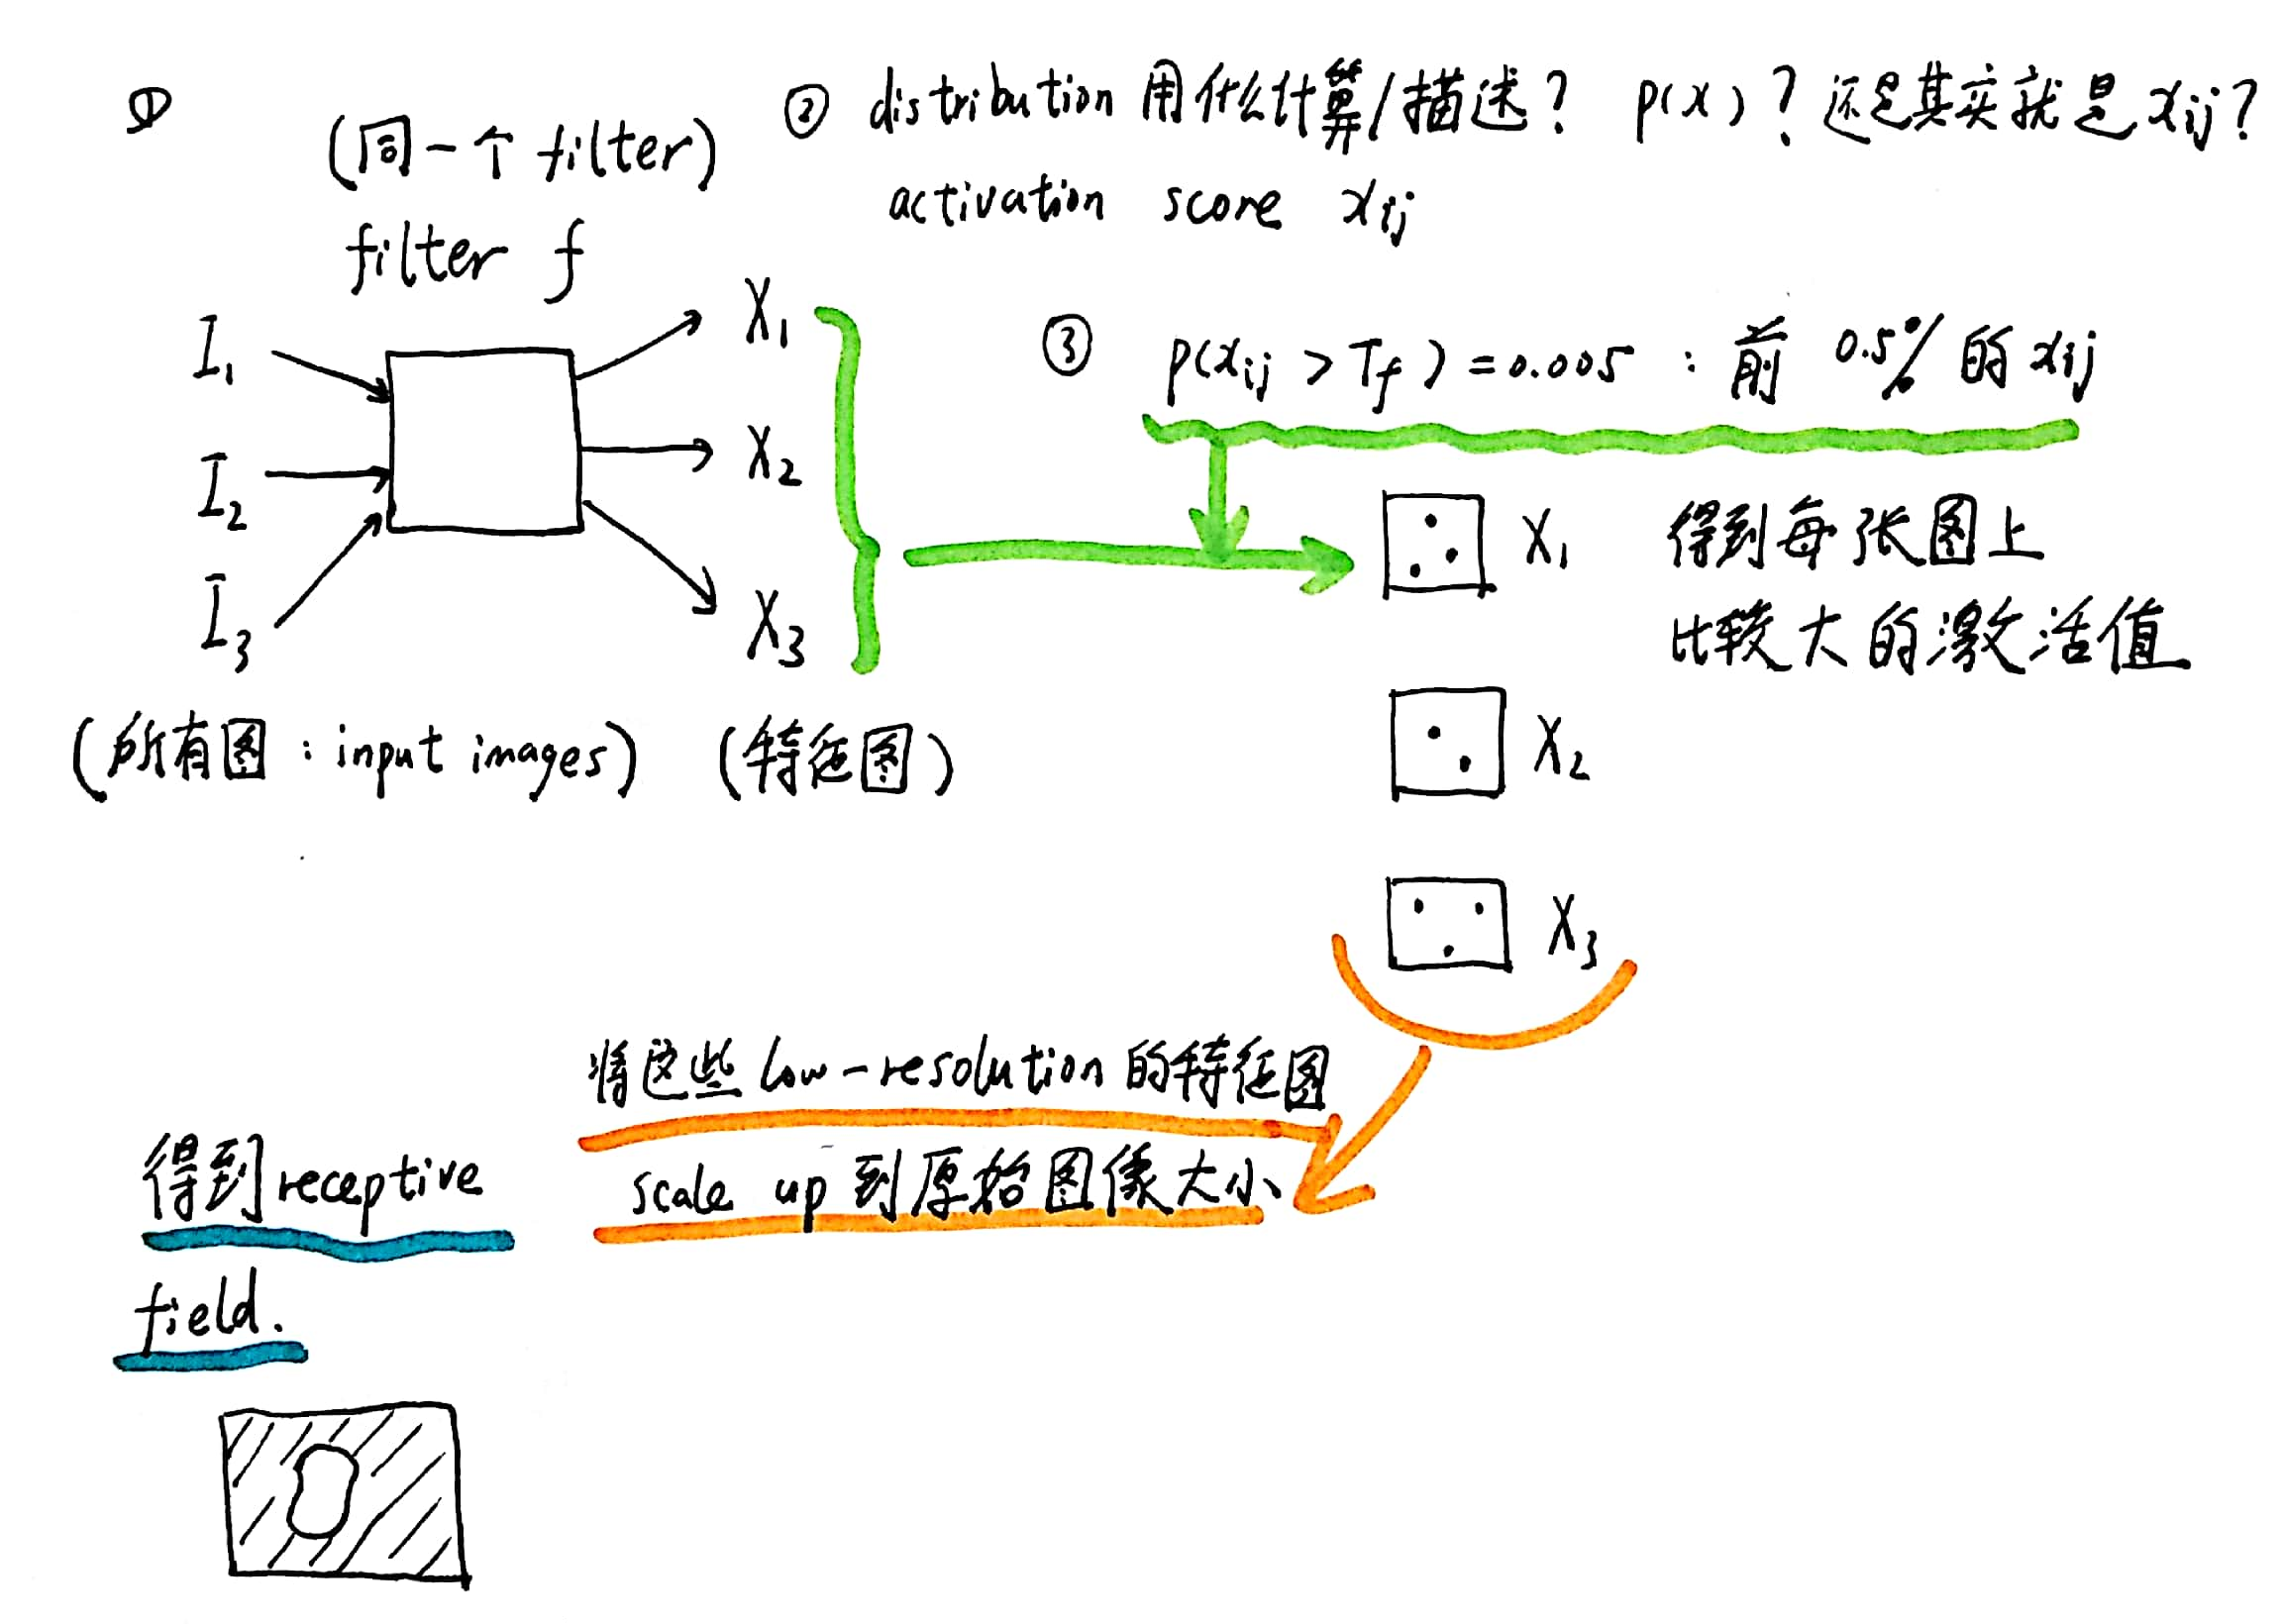 ①
(同一个 filter)
filter f
I₁
I₂
I₃
X₁
X₂
X₃
(所有图：input images)
(特征图)
② distribution 用什么计算/描述？ p(x)？还是其实就是 xij？
activation score xij
③ p(xij > Tf) = 0.005 : 前 0.5% 的 xij
X₁
得到每张图上
比较大的激活值
X₂
X₃
将这些 low-resolution 的特征图
scale up 到原始图像大小
得到 receptive
field.